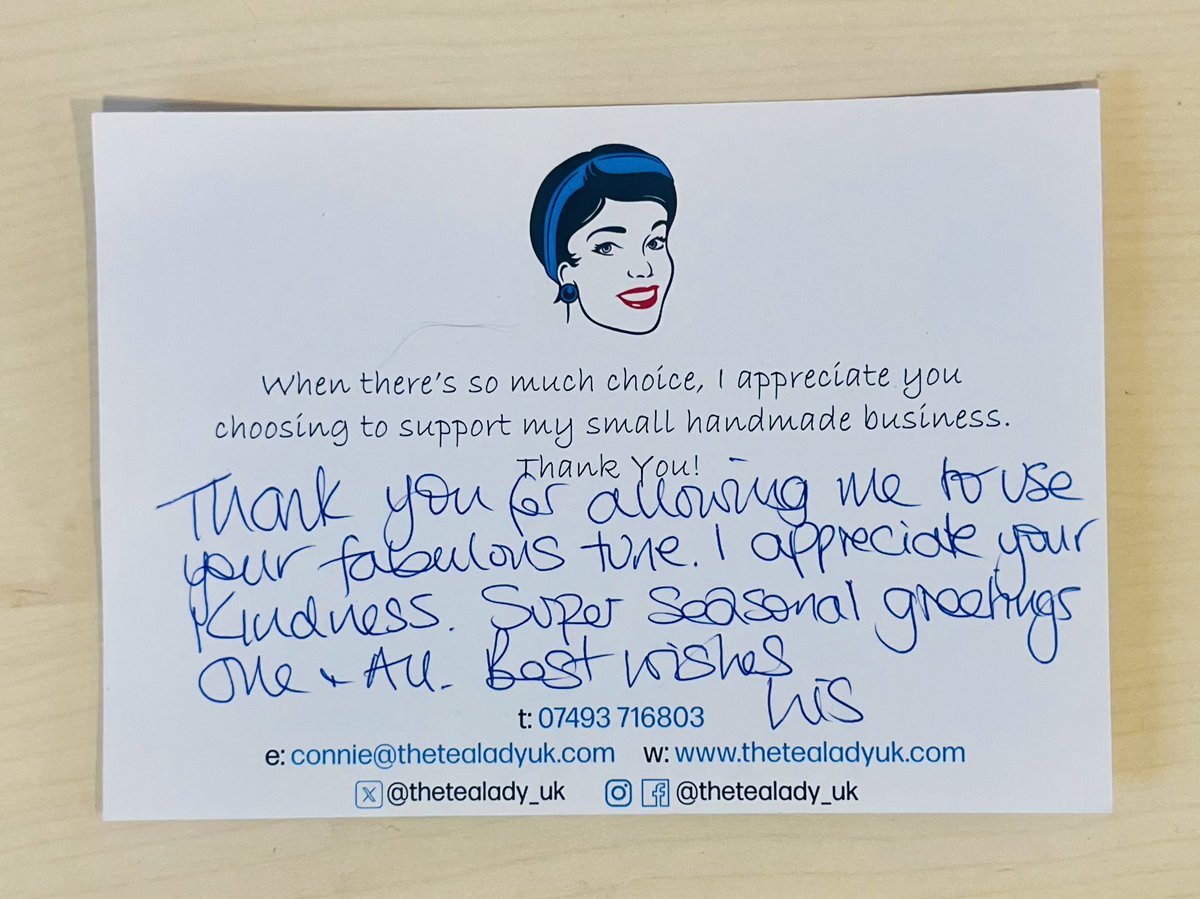 When there's so much choice, I appreciate you
choosing to support my small handmade business.
Thank You!
Thank you for allowing me to use
your fabulous tune. I appreciate your
Kindness. Super seasonal greetings
one + All. Best wishes
t: 07493 716803
e: connie@thetealadyuk.com w: www.thetealadyuk.com
@thetealady_uk @thetealady_uk